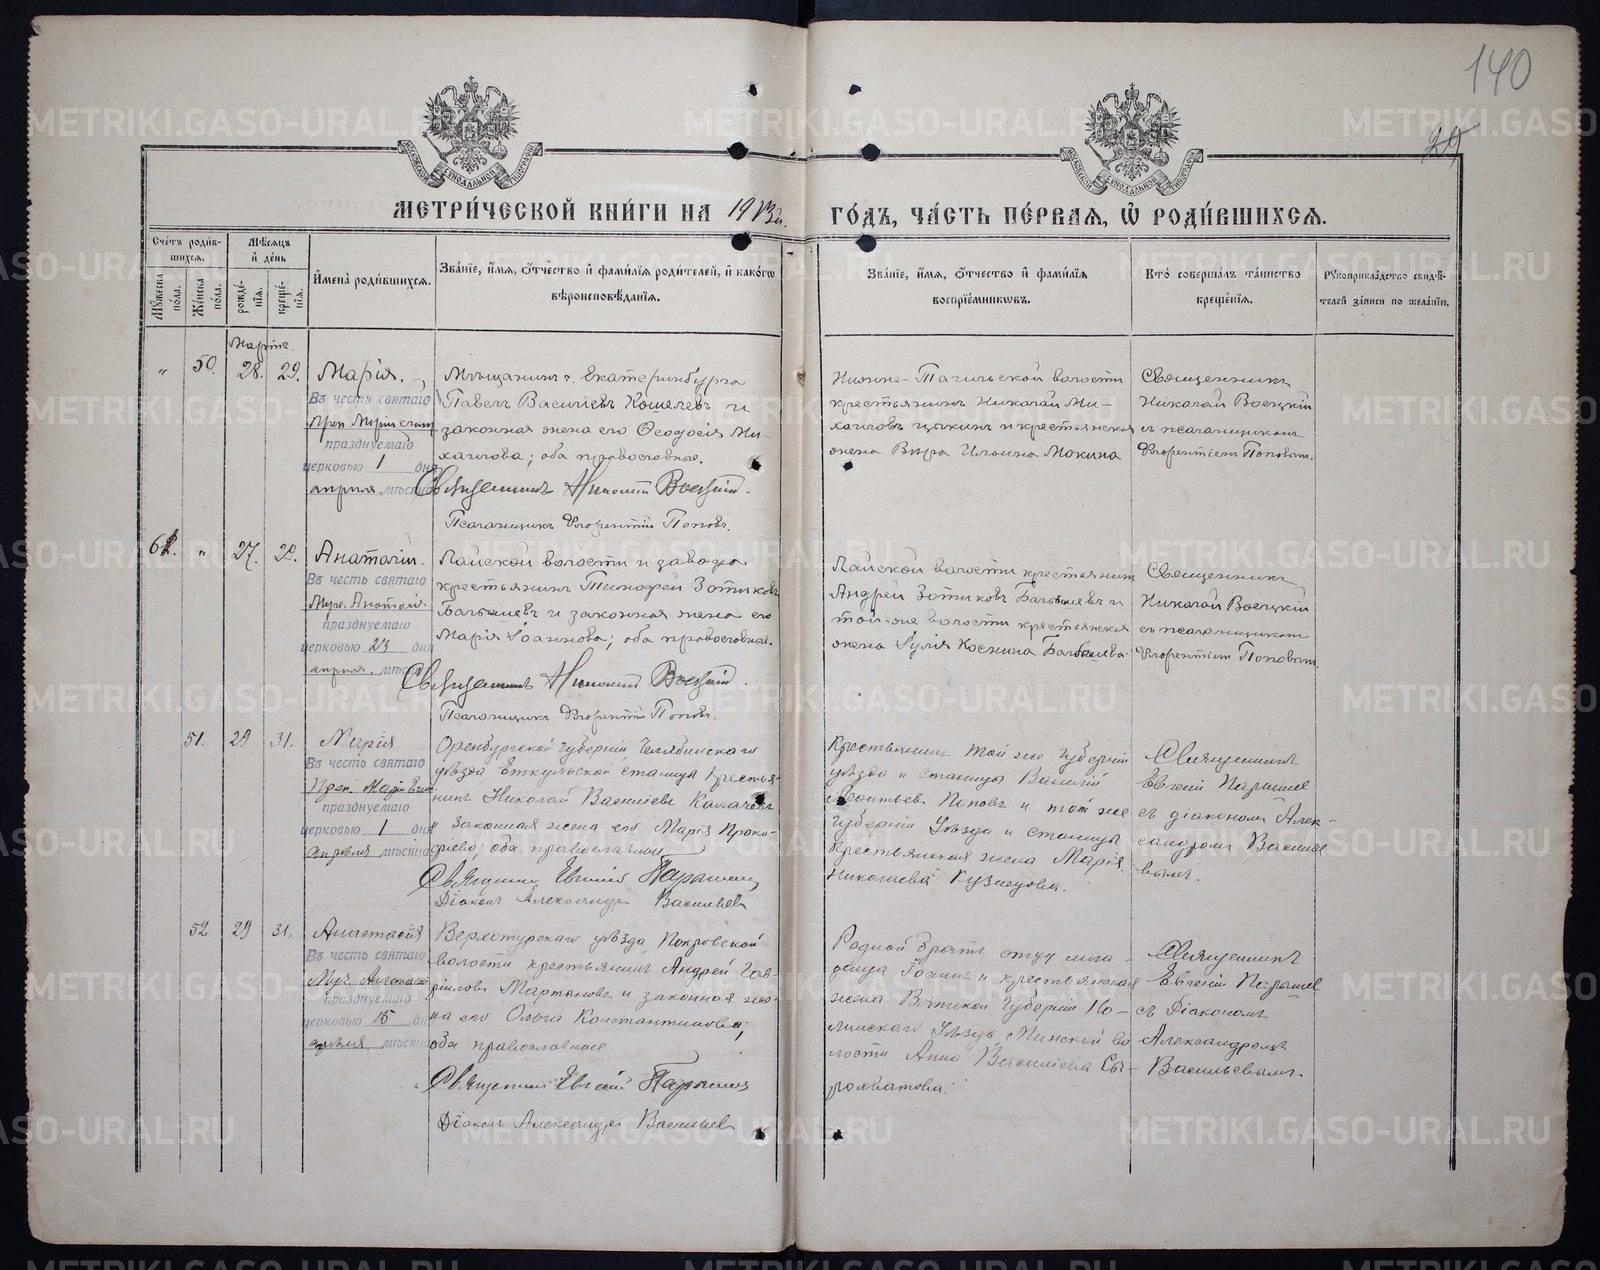 140
29
МЕТРИ́ЧЕСКОЙ КНИ́ГИ НА 1913 г.
ГО́ДЪ, ЧА́СТЬ ПЕ́РВАЯ, Ѡ РОДИ́ВШИХСЯ.
Сче́тъ роди́вшихся.
Мꙋ́жеска по́ла.
Же́нска по́ла.
Мѣ́сяцъ и҆ де́нь
рожде́нїя.
креще́нїя.
И҆мена̀ роди́вшихся.
Зва́нїе, и҆́мя, ѻ҆́тчество и҆ фами́лїя роди́телей, и҆ како́гѡ
вѣроисповѣ́данїя.
Зва́нїе, и҆́мя, ѻ҆́тчество и҆ фами́лїя
воспрїе́мникѡвъ.
Кто̀ соверша́лъ та́инство
креще́нїя.
Рꙋкоприкла́дство свидѣ́телей за́писи по жела́нїю.
Марта.
" 50. 28. 29. Марія.
Въ честь святаго
Преп. Маріи Египт.
празднуемаго
церковью 1 дня
апрѣля мѣсяца
Мѣщанинъ г. Екатеринбурга
Павелъ Васильевъ Кошелевъ и
законная жена его Ѳеодосія Ми-
хаилова; оба православные.
Священникъ Николай Воецкій.
Псаломщикъ Флорентій Поповъ.
Нижне-Тагильской волости
крестьянинъ Николай Ми-
хаиловъ и крестьянская
жена Вѣра Ильина Мокина
Священникъ
Николай Воецкій
съ псаломщикомъ
Флорентіемъ Поповым.
61. " 27. 29. Анатолій.
Въ честь святаго
Муч. Анатолія
празднуемаго
церковью 23 дня
апрѣля мѣсяца
Лайской волости и завода
крестьянинъ Тимофей Зотиковъ
Балышевъ и законная жена его
Марія Іоаннова; оба православные.
Священникъ Николай Воецкій.
Псаломщикъ Флорентій Поповъ.
Лайской волости крестьянинъ
Андрей Зотиковъ Балышевъ и
той-же волости крестьянская
жена Іулія Космина Балышева.
Священникъ
Николай Воецкій
съ псаломщикомъ
Флорентіем Поповым.
51. 29 31. Марія
Въ честь святаго
Преп. Маріи Египт.
празднуемаго
церковью 1 дня
апрѣля мѣсяца
Оренбургской губерніи Челябинскаго
уѣзда Еткульской станицы крестья-
нинъ Николай Васильевъ Калачевъ
и законная жена его Марія Проко-
піева; оба православные
Священникъ Евгеній
Діаконъ Александръ Васильевъ
Крестьянинъ той же губерніи
уѣзда и станицы Василій
Леонтьевъ Поповъ и той же
губерніи уѣзда и станицы
крестьянская жена Марія
Николаева Кузнецова.
Священникъ
Евгеній
съ діакономъ Алек-
сандромъ Василье
вымъ.
52 29 31. Анастасія
Въ честь святаго
Муч. Анастасіи
празднуемаго
церковью 15 дня
апрѣля мѣсяца
Верхотурскаго уѣзда Покровской
волости крестьянинъ Андрей Гав-
риловъ Мартыновъ и законная же-
на его Ольга Константинова;
оба православные.
Священникъ Евгеній
Діаконъ Александръ Васильевъ
Родной братъ отцу мла-
денца Іоаннъ и крестьянская
жена Вятской губерніи Но-
линскаго уѣзда, во
лости Анна Васильева Сы-
Священникъ
Евгеній
съ Діакономъ
Александромъ
Васильевымъ.